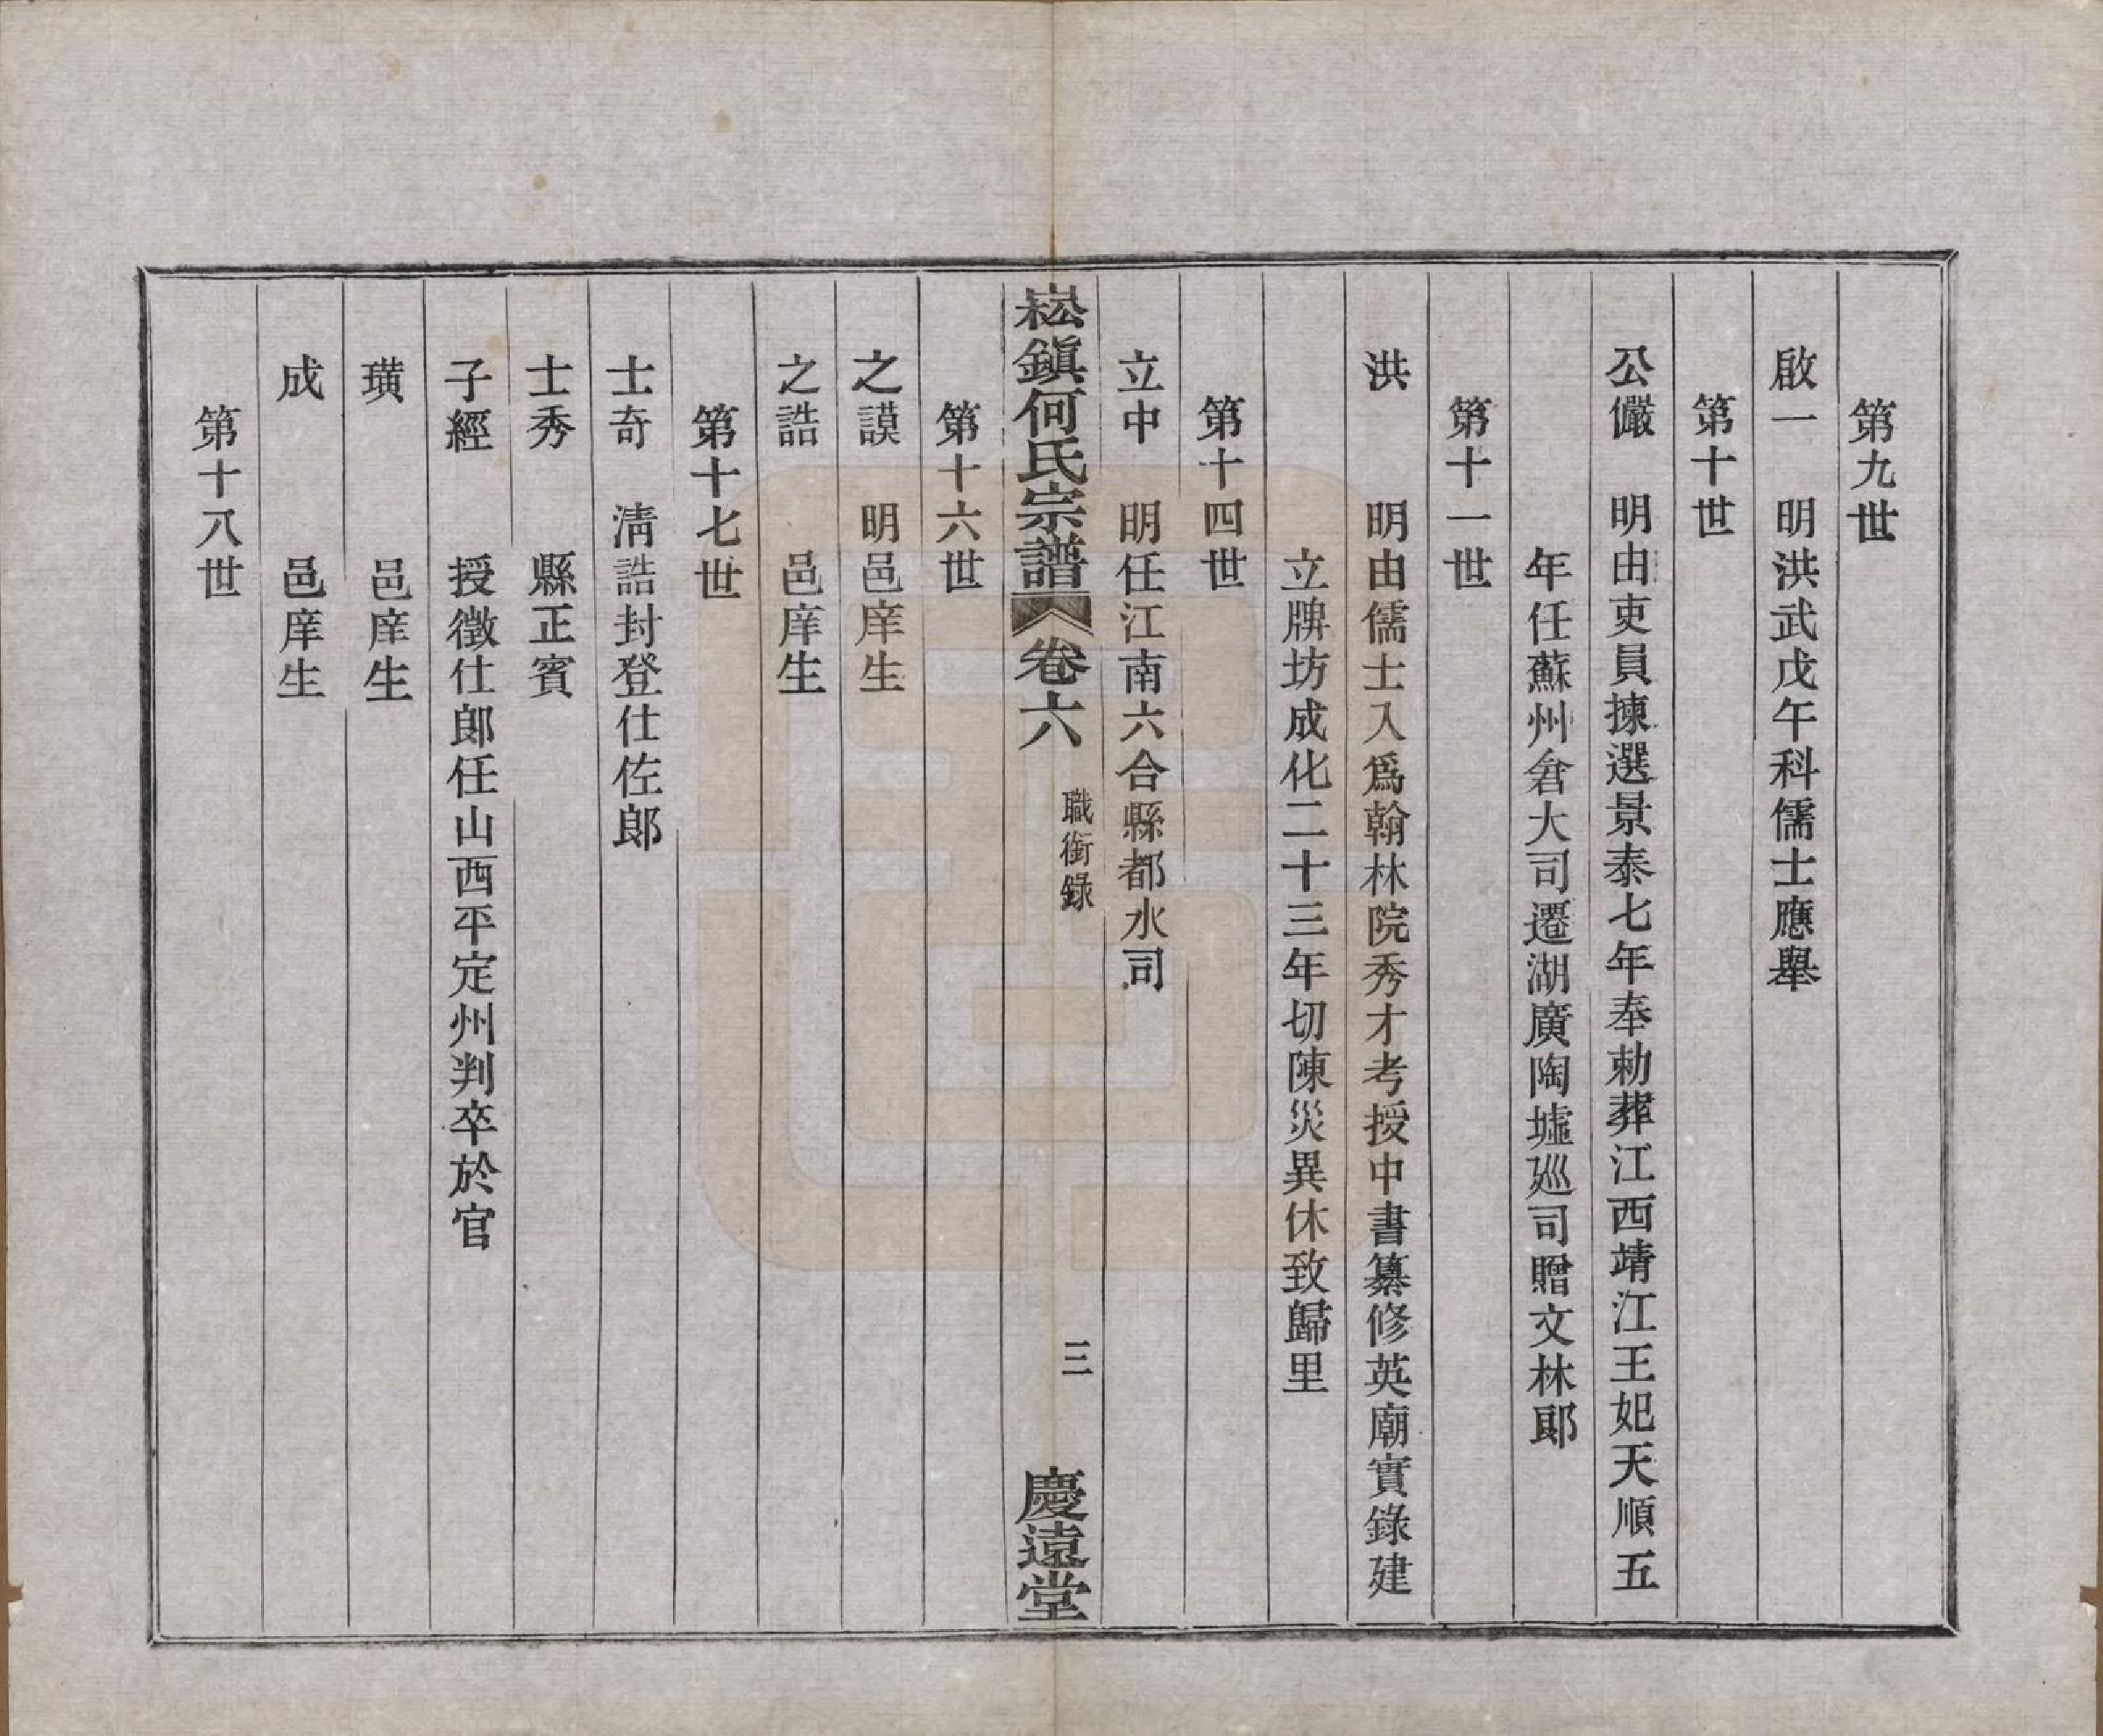 第九世
啟一　明洪武戊午科儒士應舉
第十世
公儼　明由吏員揀選景泰七年奉勅葬江西靖江王妃天順五
年任蘇州倉大司遷湖廣陶墟廵司贈文林郎
第十一世
洪　明由儒士入爲翰林院秀才考授中書纂修英廟實錄建
立牌坊成化二十三年切陳災異休致歸里
第十四世
立中　明任江南六合縣都水司
崧鎮何氏宗譜　卷六　職銜錄　三　慶遠堂
第十六世
之謨　明邑庠生
之誥　邑庠生
第十七世
士奇　淸誥封登仕佐郎
士秀　縣正賓
子經　授徵仕郎任山西平定州判卒於官
璜　邑庠生
成　邑庠生
第十八世